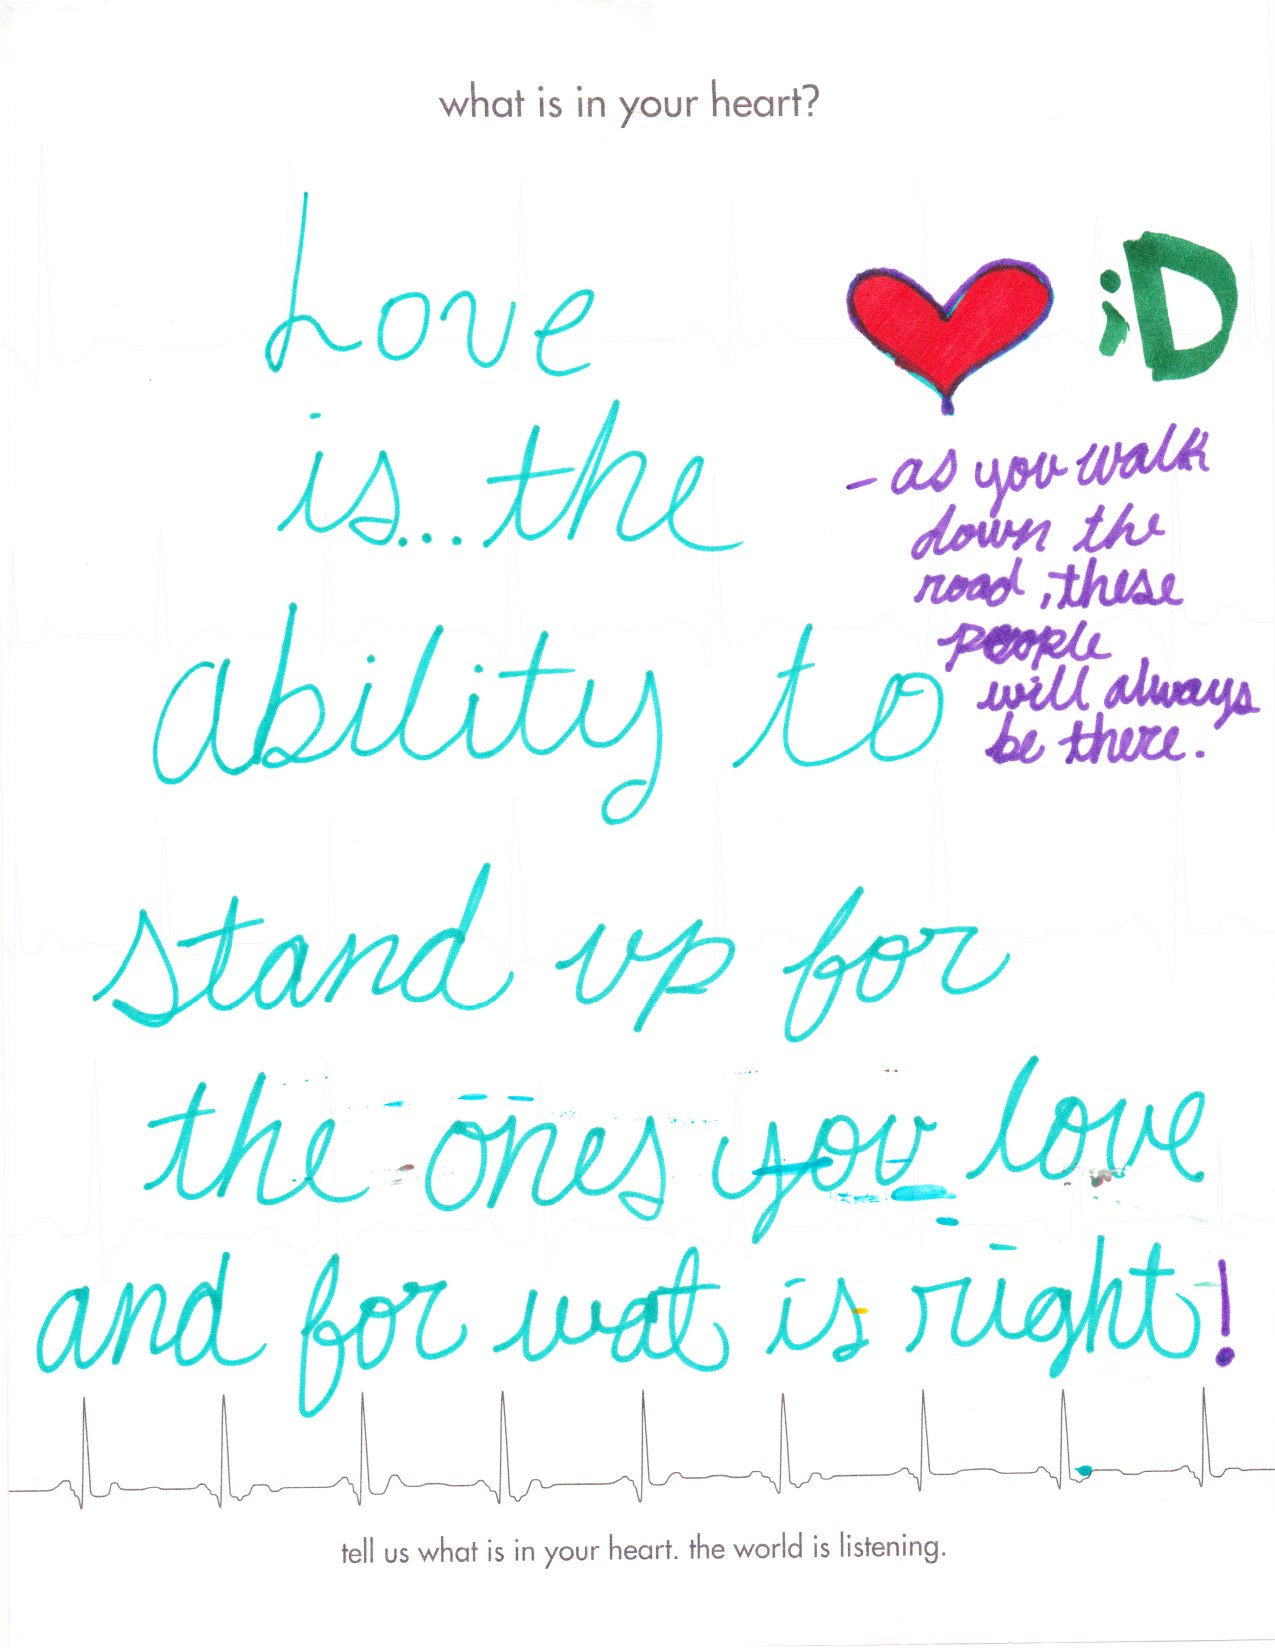 what is in your heart?
Love
is... the
ability to
stand up for
the ones you love
and for wat is right!
iD
- as you walk
down the
road, these
people
will always
be there.
tell us what is in your heart. the world is listening.